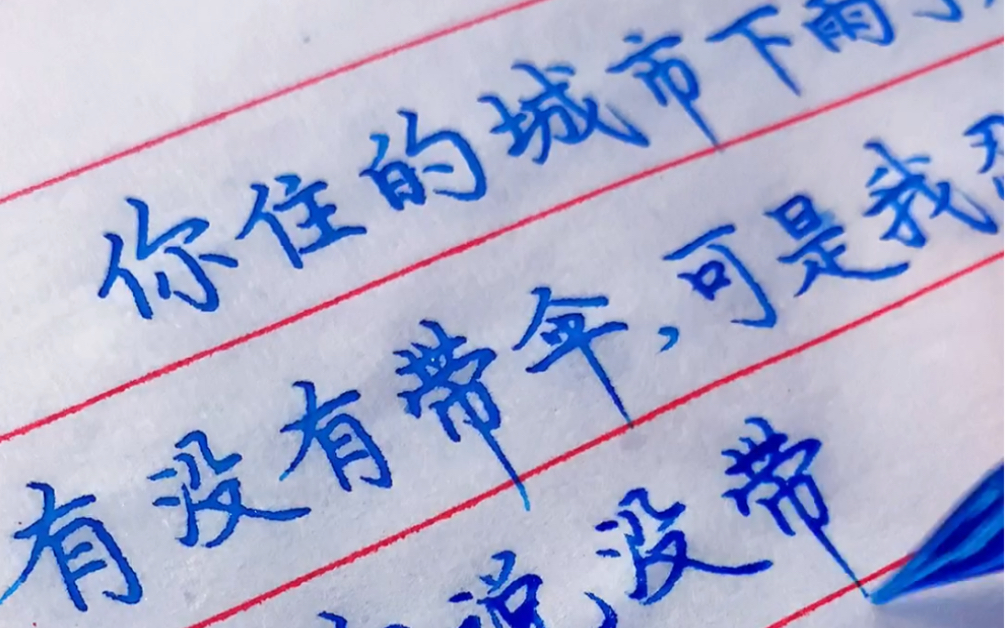 你住的城市下雨了
有没有带伞,可是我
说没带